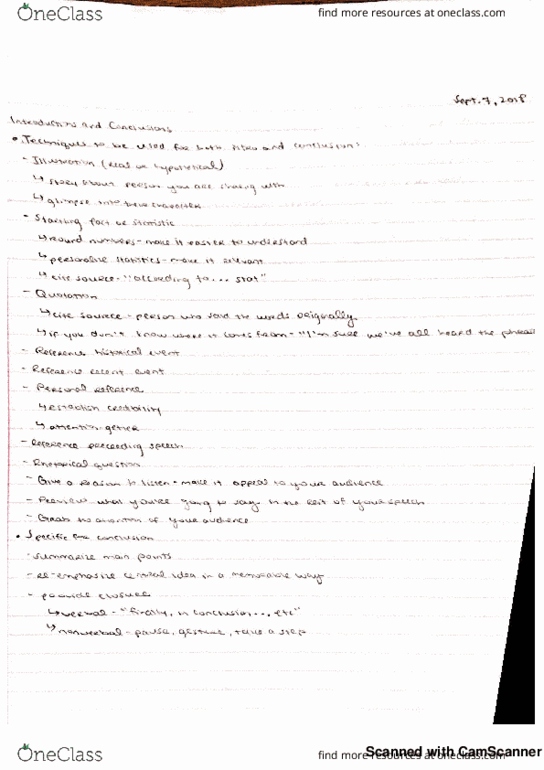 OneClass
find more resources at oneclass.com
Sept. 7, 2018
Introductions and Conclusions
• Techniques to be used for both intro and conclusion:
- Illustration (real or hypothetical)
↳ story about person you are sharing with
↳ glimpse into their character
- Startling fact or statistic
↳ round numbers - make it easier to understand
↳ personalize statistics - make it relevant
↳ cite source - "according to... stat"
- Quotation
↳ cite source - person who said the words originally
↳ if you don't know where it comes from - "I'm sure we've all heard the phrase
- Reference historical event
- Reference recent event
- Personal reference
↳ establish credibility
↳ attention-getter
- Reference preceeding speech
- Rhetorical question
- Give a reason to listen - make it appeal to your audience
- Preview what you're going to say in the rest of your speech
- Grab the attention of your audience
• Specific for conclusion
- summarize main points
- re-emphasize central idea in a memorable way
- provide closure
↳ verbal - "finally, in conclusion... etc"
↳ nonverbal - pause, gesture, take a step
OneClass
find more resources at oneclass.com
Scanned with CamScanner